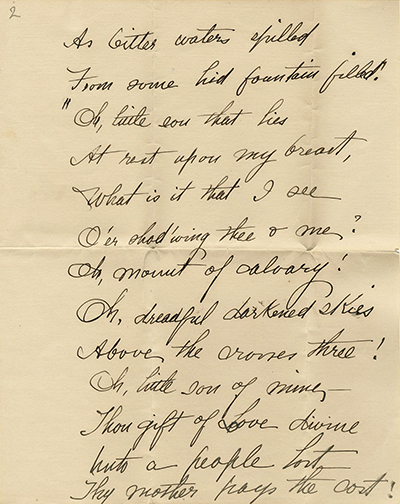 2
As bitter waters spilled
From some hid fountain filled."
"Oh, little son that lies
At rest upon my breast,
What is it that I see
O'er shad'wing thee & me?
Oh, mount of calvary!
Oh, dreadful darkened skies
Above, the crosses three!
Oh, little son of mine,—
Thou gift of Love divine
Unto a people lost,
Thy mother pays the cost!